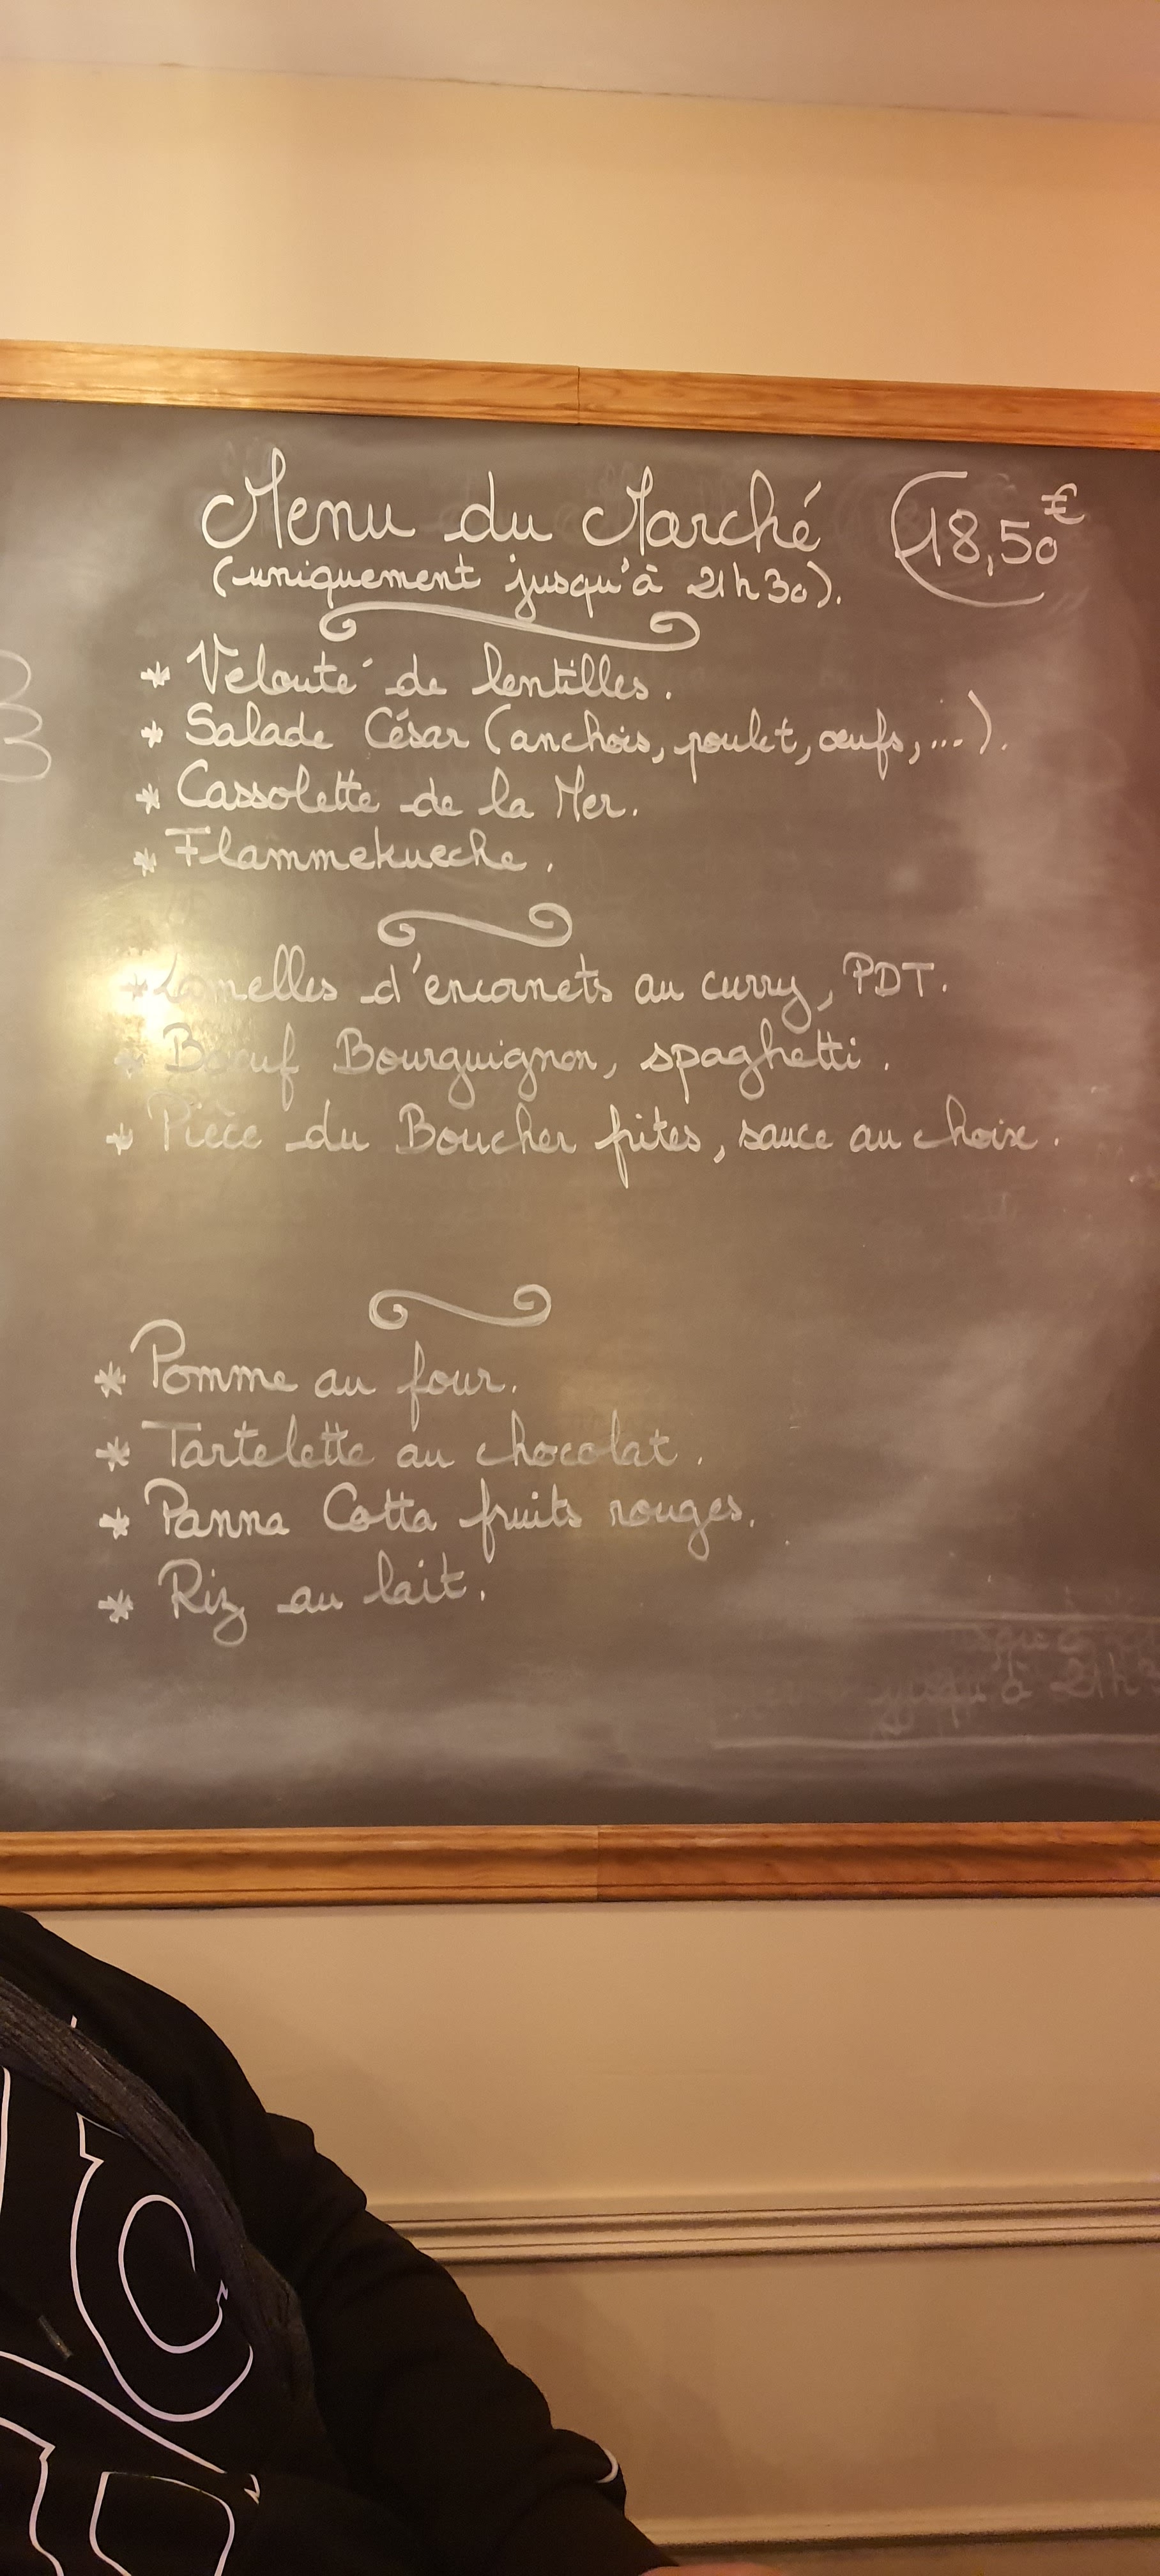 Menu du Marché 18,50€
(uniquement jusqu'à 21h30).
* Velouté de lentilles.
* Salade César (anchois, poulet, œufs, ...).
* Cassolette de la Mer.
* Flammekueche.
* Lamelles d'encornets au curry, PDT.
* Bœuf Bourguignon, spaghetti.
* Pièce du Boucher frites, sauce au choix.
* Pomme au four.
* Tartelette au chocolat.
* Panna Cotta fruits rouges.
* Riz au lait.
jusqu'à 21h